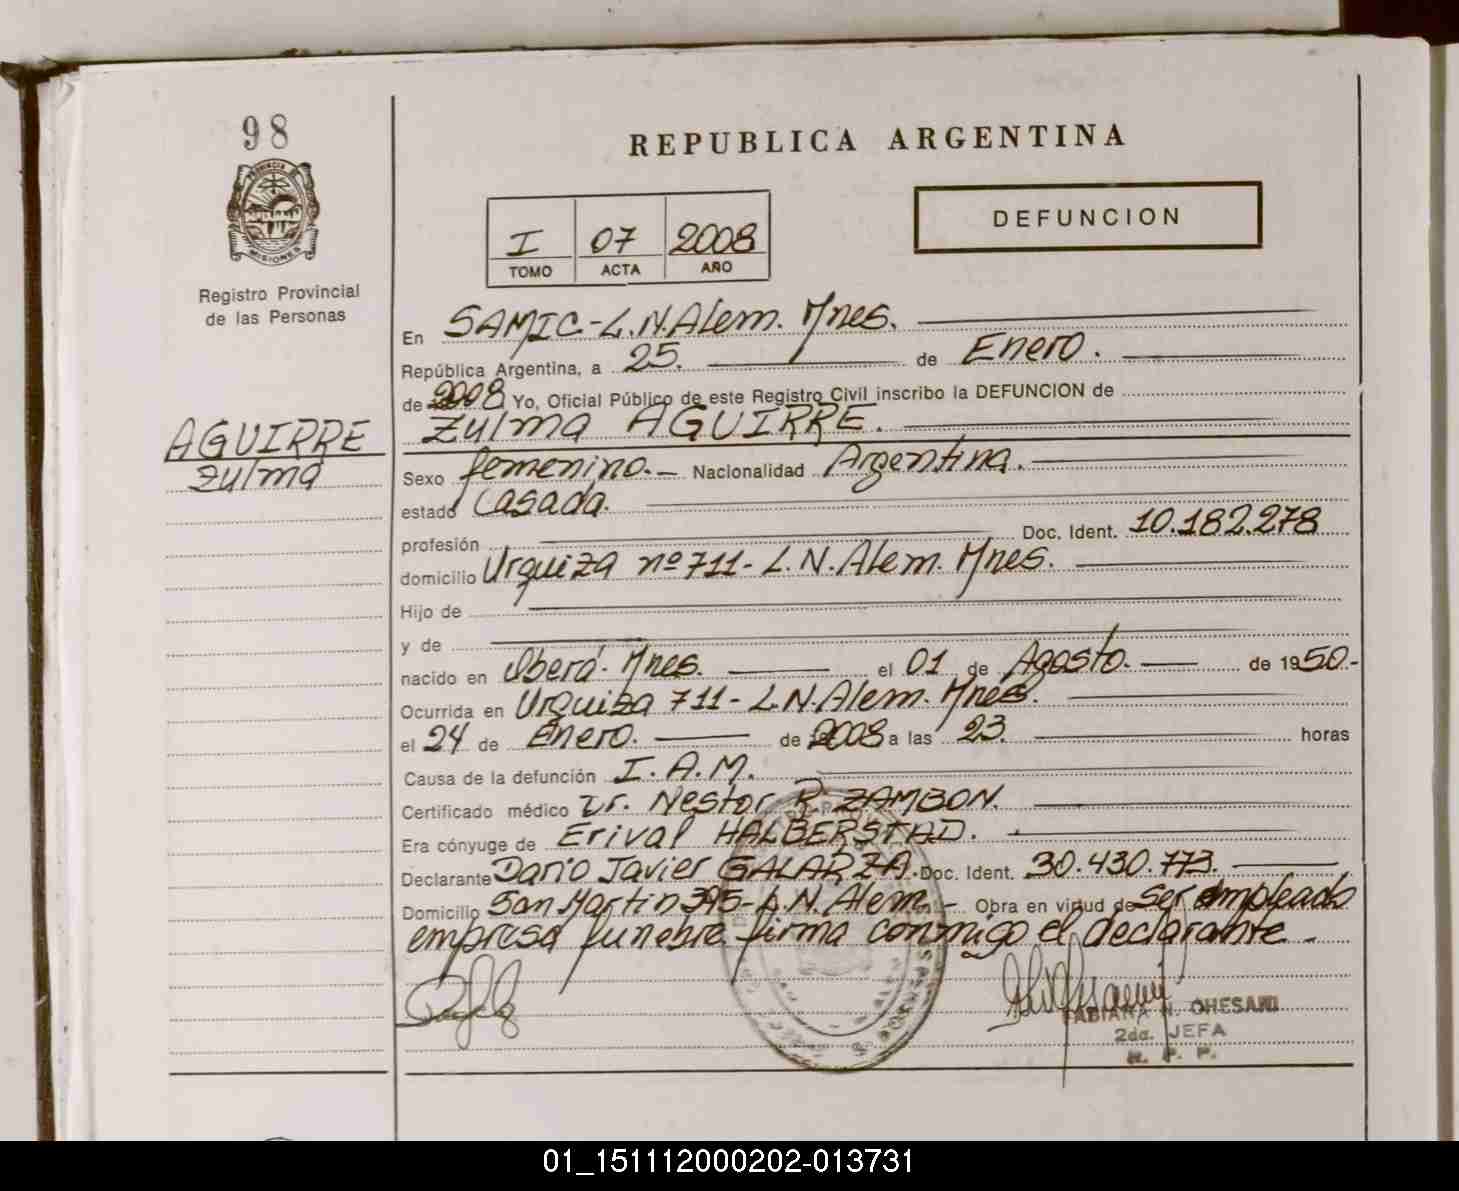 98
PROVINCIA DE
MISIONES
Registro Provincial
de las Personas
AGUIRRE
Zulma
REPUBLICA ARGENTINA
I 07 2008
TOMO ACTA AÑO
DEFUNCION
En SAMIC-L.N.Alem. Mnes.
República Argentina, a 25. de Enero.
de 2008 Yo, Oficial Público de este Registro Civil inscribo la DEFUNCION de
Zulma AGUIRRE.
Sexo femenino.- Nacionalidad Argentina.
estado Casada.
profesión Doc. Ident. 10.182.278
domicilio Urquiza nº 711- L.N.Alem. Mnes.
Hijo de
y de
nacido en Oberá. Mnes. el 01 de Agosto. de 1950.-
Ocurrida en Urquiza 711- L.N.Alem. Mnes.
el 24 de Enero. de 2008 a las 23. horas
Causa de la defunción I.A.M.
Certificado médico Dr. Nestor R. ZAMBON.
Era cónyuge de Erival HALBERSTAD.
Declarante Dario Javier GALARZA. Doc. Ident. 30.430.773.
Domicilio San Martin 395-L.N.Alem.- Obra en virtud de ser empleado
empresa funebre firma conmigo el declarante.-
FABIANA N. OHESANI
2da. JEFA
R. P. P.
01_151112000202-013731